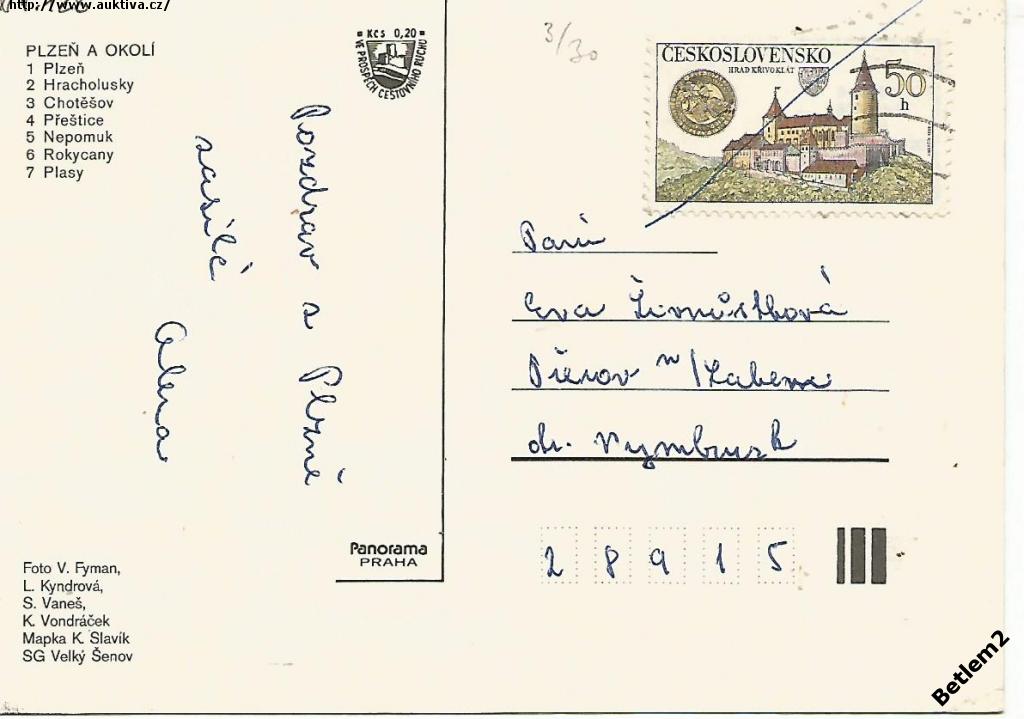 http://www.auktiva.cz/
PLZEŇ A OKOLÍ
1 Plzeň
2 Hracholusky
3 Chotěšov
4 Přeštice
5 Nepomuk
6 Rokycany
7 Plasy
Kčs 0,20
VE PROSPĚCH CESTOVNÍHO RUCHU
Pozdrav z Plzně
zasílá
Alena
3/30
ČESKOSLOVENSKO
HRAD KŘIVOKLÁT
50
h
Paní
Eva
Přerov n/Labem
ok. Nymburk
28915
Panorama
PRAHA
Foto V. Fyman,
L. Kyndrová,
S. Vaneš,
K. Vondráček
Mapka K. Slavík
SG Velký Šenov
Betlem2